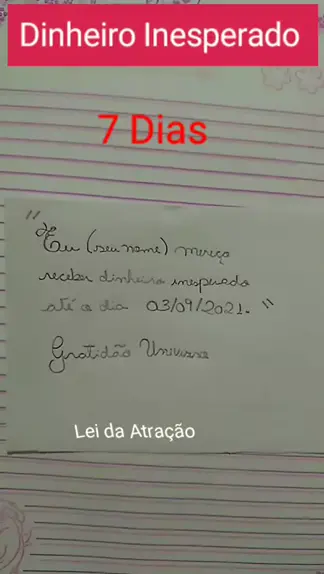 Dinheiro Inesperado
7 Dias
"Eu (seu nome) mereço
receber dinheiro inesperado
até o dia 03/09/2021."
Gratidão Universo
Lei da Atração